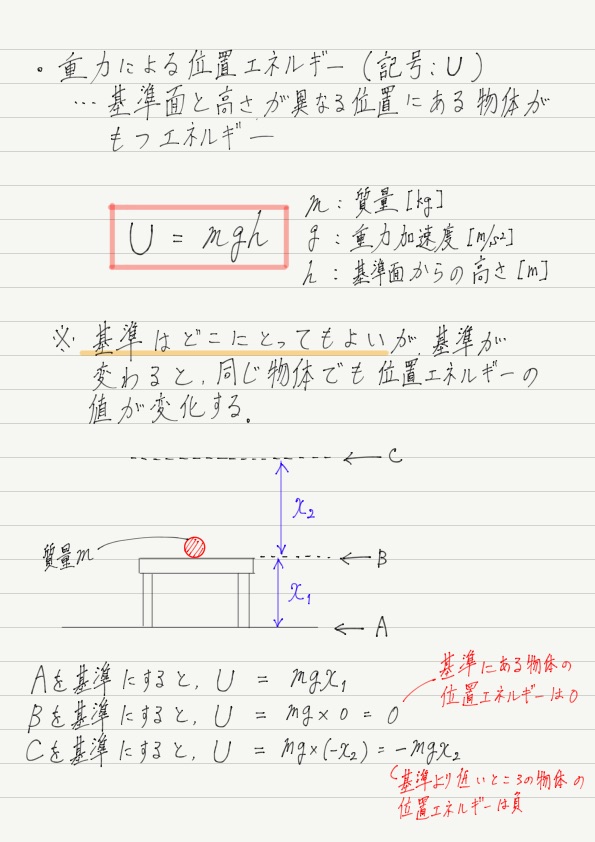 ・重力による位置エネルギー (記号:U)
… 基準面と高さが異なる位置にある物体が
もつエネルギー
U = mgh
m : 質量 [kg]
g : 重力加速度 [m/s²]
h : 基準面からの高さ [m]
※ 基準はどこにとってもよいが、基準が
変わると、同じ物体でも位置エネルギーの
値が変化する。
C
x₂
質量m
B
x₁
A
Aを基準にすると、U = mgx₁
Bを基準にすると、U = mg×0 = 0
Cを基準にすると、U = mg×(-x₂) = -mgx₂
基準にある物体の
位置エネルギーは0
基準より低いところの物体の
位置エネルギーは負